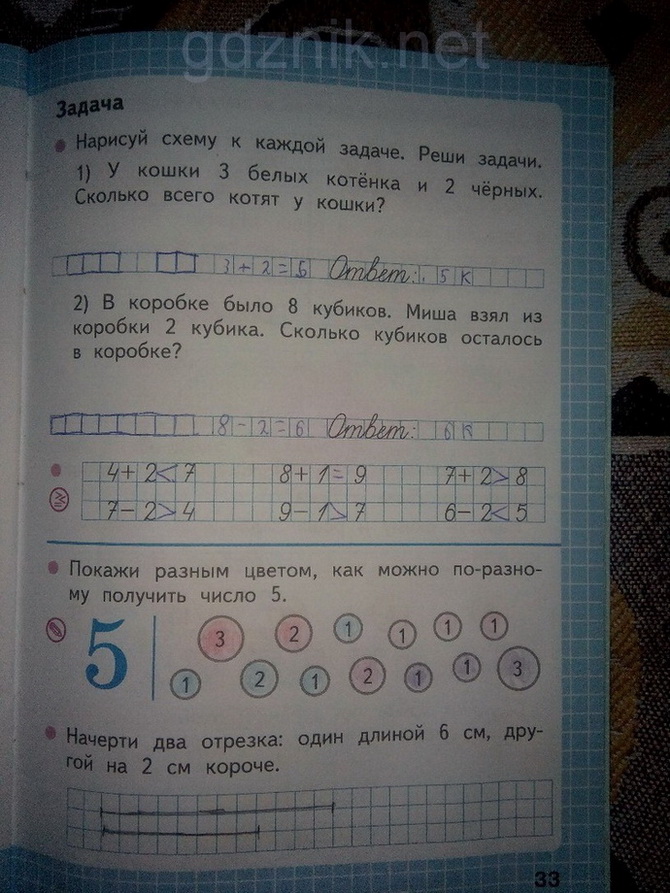 gdznik.net
Задача
Нарисуй схему к каждой задаче. Реши задачи.
1) У кошки 3 белых котёнка и 2 чёрных.
Сколько всего котят у кошки?
3+2=5 Ответ: 5 к
2) В коробке было 8 кубиков. Миша взял из
коробки 2 кубика. Сколько кубиков осталось
в коробке?
8-2=6 Ответ: 6 к
4+2<7 8+1=9 7+2>8
7-2>4 9-1>7 6-2<5
Покажи разным цветом, как можно по-разно-
му получить число 5.
5
3 2 1 1 1 1
1 2 1 2 1 1 3
Начерти два отрезка: один длиной 6 см, дру-
гой на 2 см короче.
33